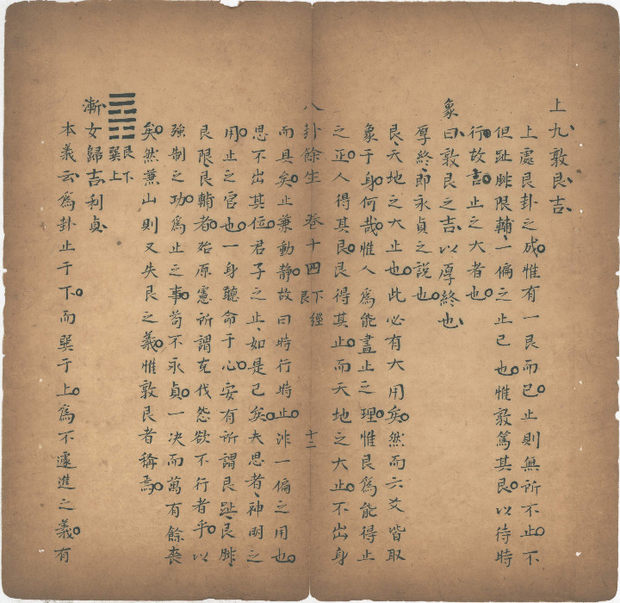 上九敦艮吉
上處艮卦之成惟有一艮而已止則無所不止不
但趾腓限輔一偏之止已也惟敦篤其艮以待時
行故言止之大者也
象曰敦艮之吉以厚終也
厚終即永貞之說也
艮天地之大止也此必有大用矣然而六爻皆取
象于身何哉惟人爲能盡止之理惟艮爲能得止
之正人得其艮艮得其止而天地之大止不出身
八卦餘生 卷十四 下經 艮 十二
而具矣止兼動靜故曰時行時止非一偏之用也
思不出其位君子之止如是已矣夫思者神明之
用止之官也一身聽命于心安有所謂艮趾艮腓
艮限艮輔者殆原憲所謂克伐怨欲不行者乎以
強制之功爲止之事苟不永貞一决而萬有餘喪
矣然兼山則又失艮之義惟敦艮者稱焉
艮下
巽上
漸女歸吉利貞
本義云爲卦止于下而巽于上爲不遽進之義有